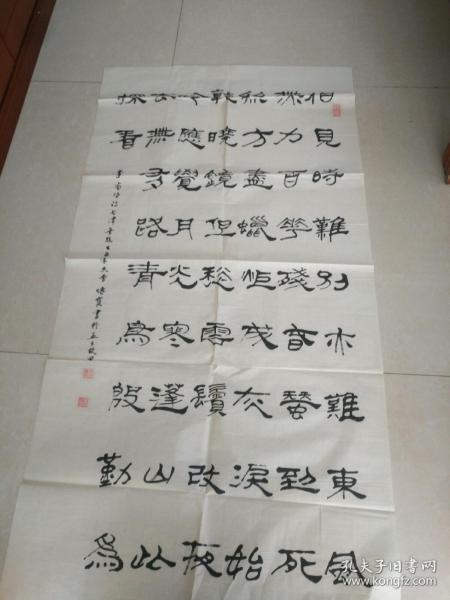 相見時難別亦難東風
無力百花殘春蠶到死
絲方盡蠟炬成灰淚始
乾曉鏡但愁雲鬢改夜
吟應覺月光寒蓬山此
去無多路青鳥殷勤為
探看
李商隐詩
孔夫子旧书网
www.kongfz.com